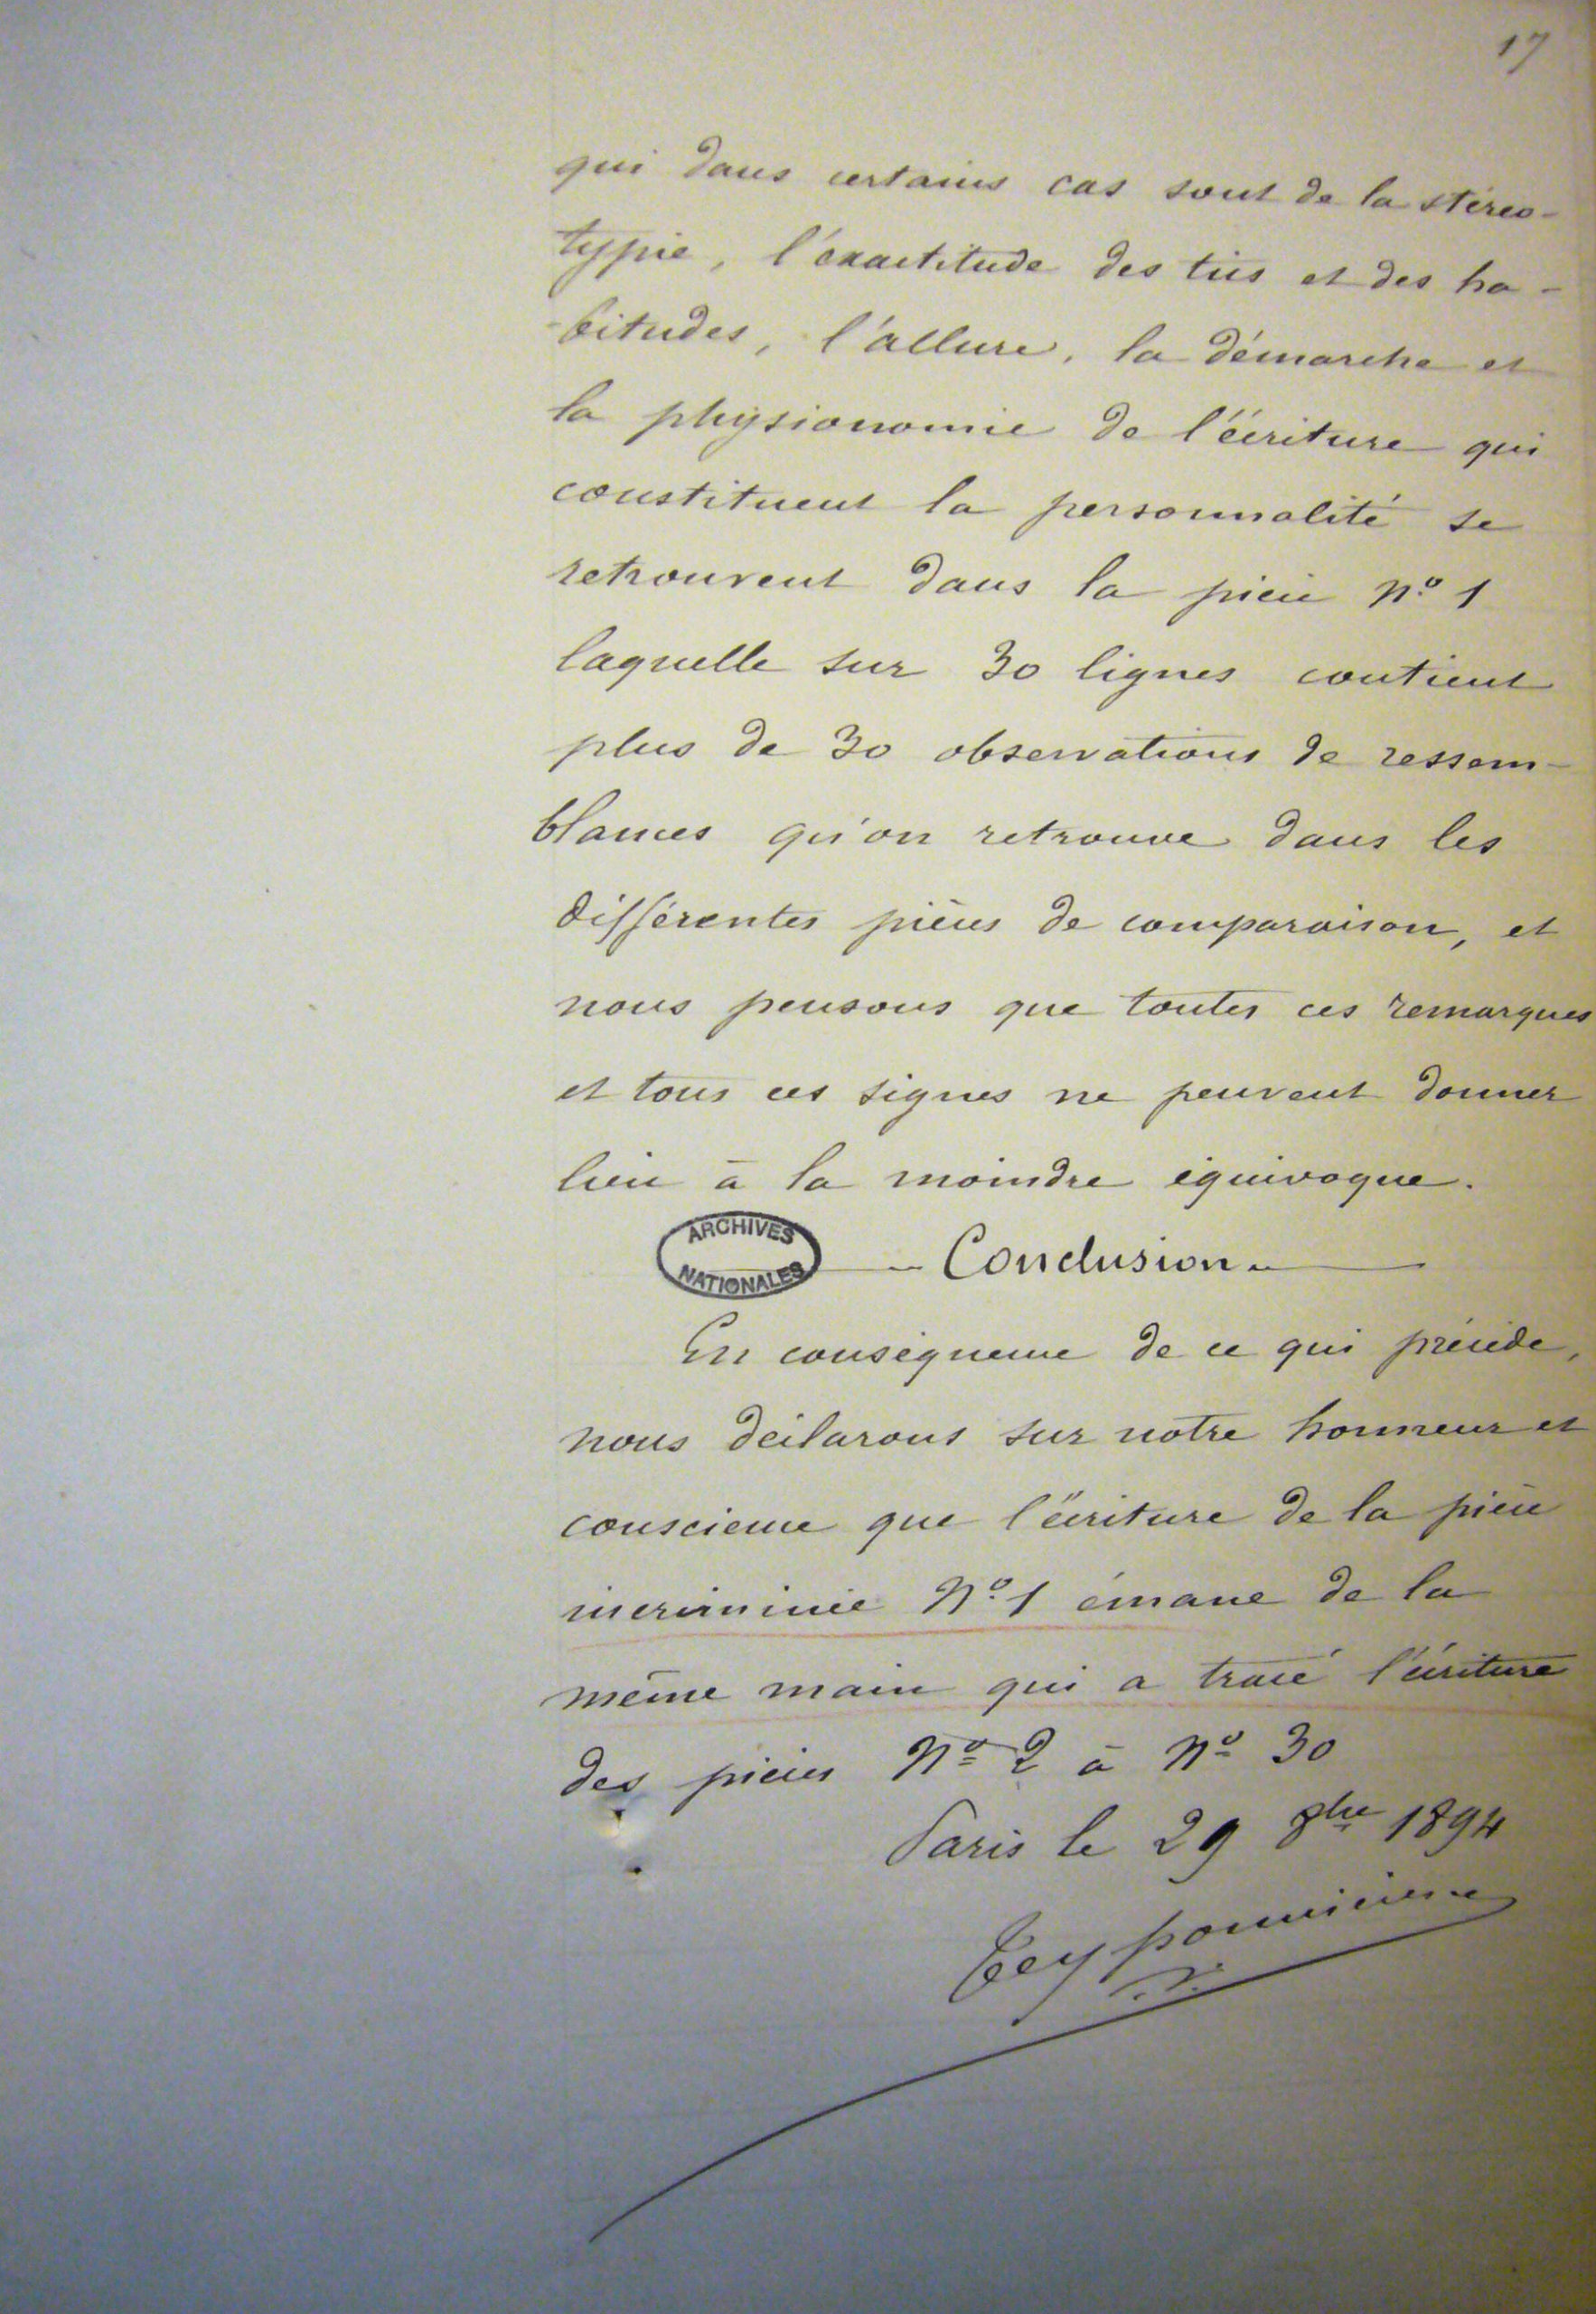 17
qui dans certains cas sont de la stéréo-
typie, l'exactitude des tics et des ha-
-bitudes, l'allure, la démarche et
la physionomie de l'écriture qui
constituent la personnalité se
retrouvent dans la pièce Nº 1
laquelle sur 30 lignes contient
plus de 30 observations de ressem-
blances qu'on retrouve dans les
différentes pièces de comparaison, et
nous pensons que toutes ces remarques
et tous ces signes ne peuvent donner
lieu à la moindre équivoque.
ARCHIVES NATIONALES
- Conclusion -
En conséquence de ce qui précède,
nous déclarons sur notre honneur et
conscience que l'écriture de la pièce
incriminée Nº 1 émane de la
même main qui a tracé l'écriture
des pièces Nº 2 à Nº 30
Paris le 29 8bre 1894
Teysonnières